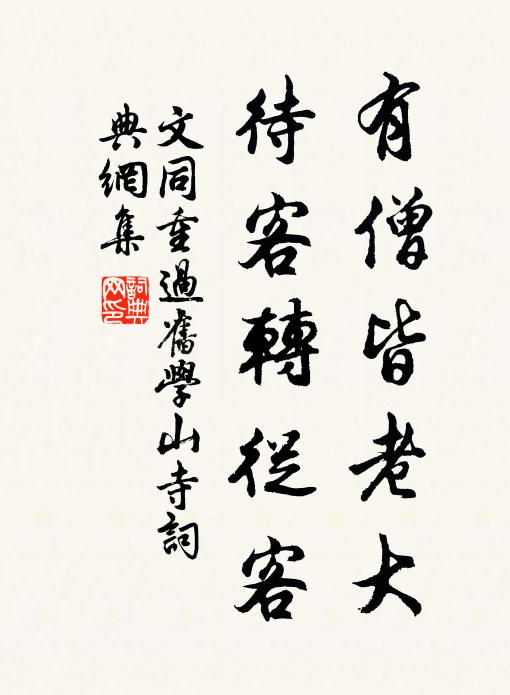 有僧皆老大
待客轉從客
文同重過舊學山寺詞
典網集
詞典網印